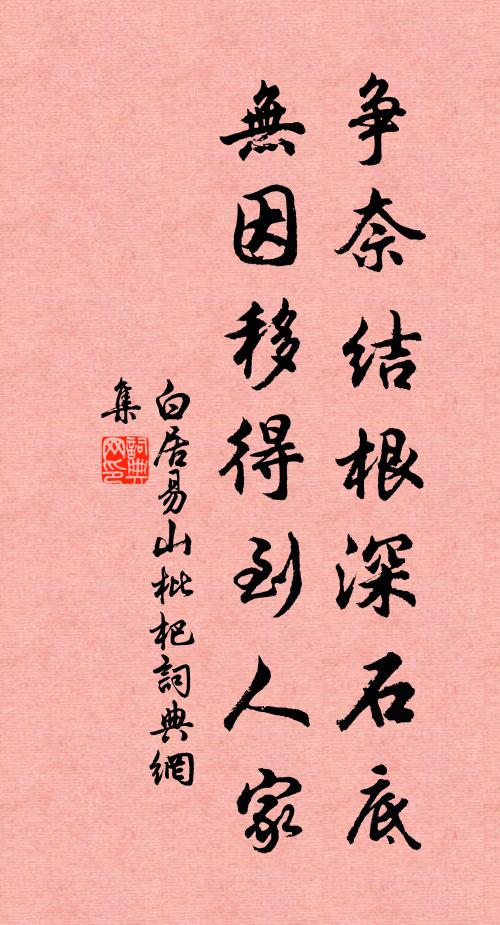 争奈結根深石底
無因移得到人家
白居易山枇杷詞典網
集
詞典
网印